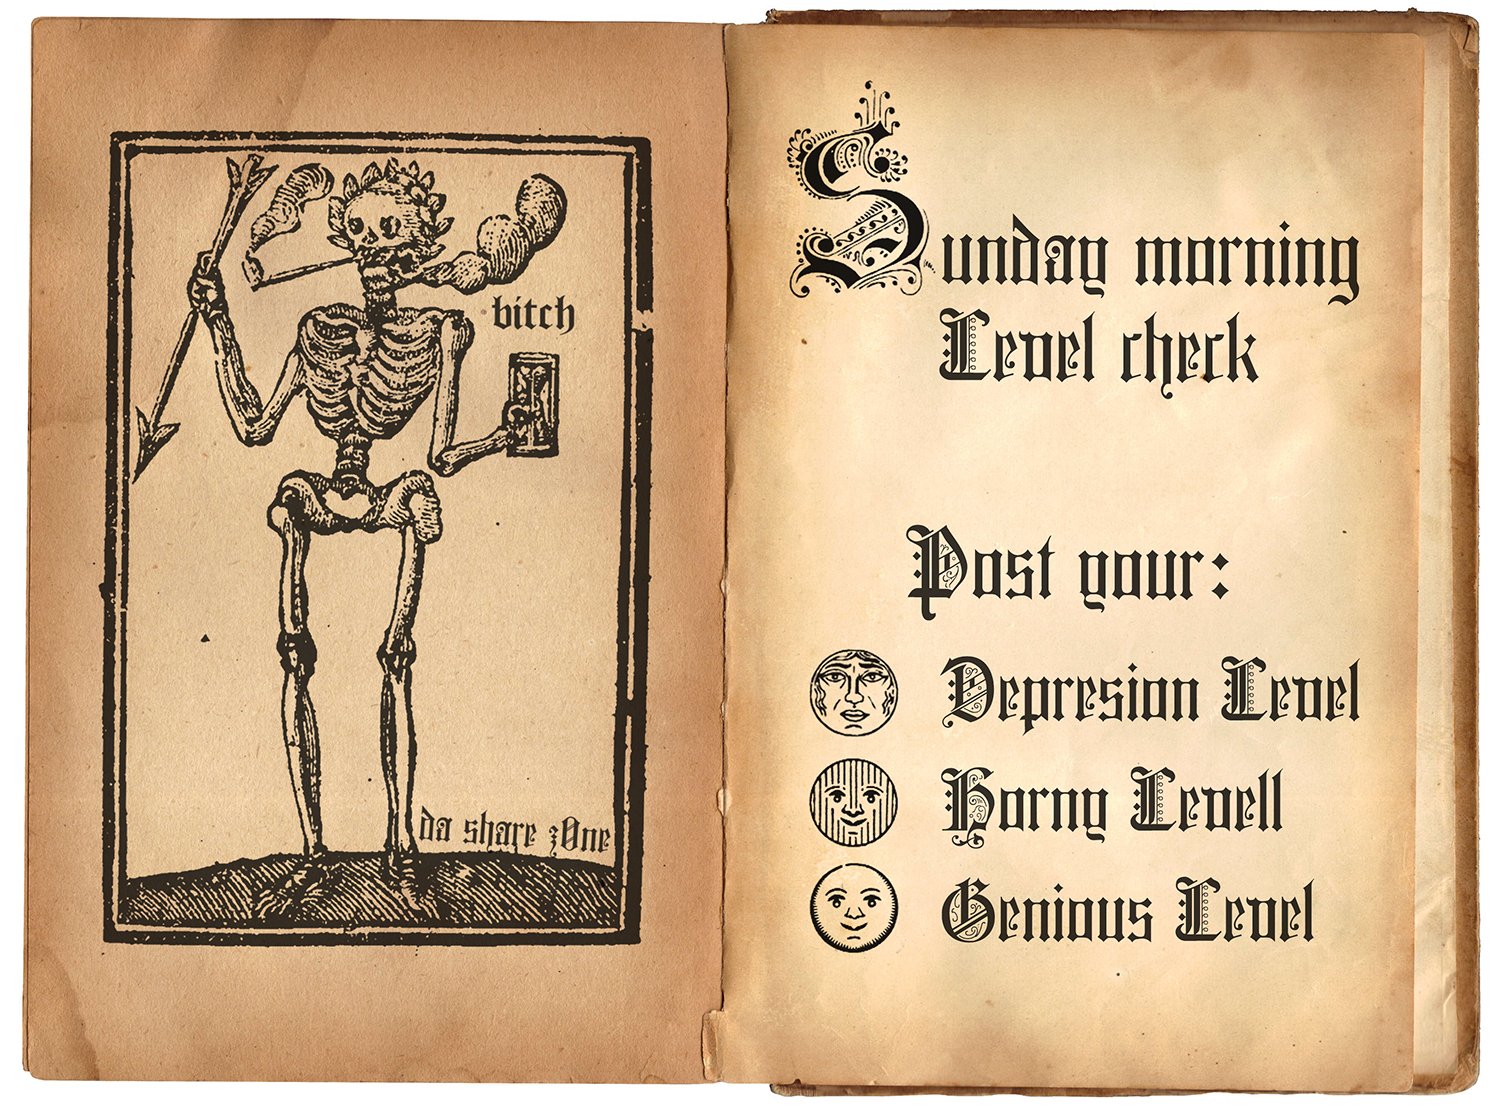 bitch
da share z0ne
Sunday morning
Level check
Post your:
Depresion Level
Horny Levell
Genious Level